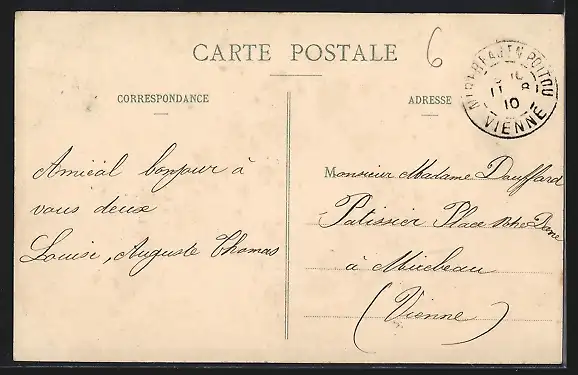 CARTE POSTALE
6
CORRESPONDANCE
ADRESSE
MIREBEAU EN POITOU
11 8
10
VIENNE
Amical bonjour à
vous deux
Louise, Auguste Thomas
Monsieur Madame Dauffard
Patissier Place Notre Dame
à Mirebeau
(Vienne)